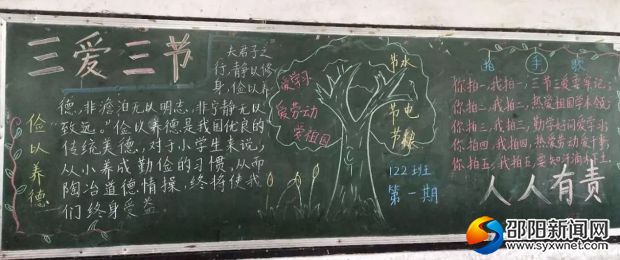 三爱三节
俭以养德
夫君子之
行，静以修
身，俭以养
德，非澹泊无以明志，非宁静无以
致远。”俭以养德是我国优良的
传统美德，对于小学生来说，
从小养成勤俭的习惯，从而
陶冶道德情操，终将使我
们终身受益
爱学习
爱劳动
爱祖国
节水
节电
节粮
122班
第一期
拍手歌
你拍一，我拍一，三节三爱要牢记；
你拍二，我拍二，热爱祖国学本领；
你拍三，我拍三，勤学好问爱学习；
你拍四，我拍四，热爱劳动爱干事；
你拍五，我拍五，要知汗滴禾下土。
人人有责
邵阳新闻网
www.syxwnet.com